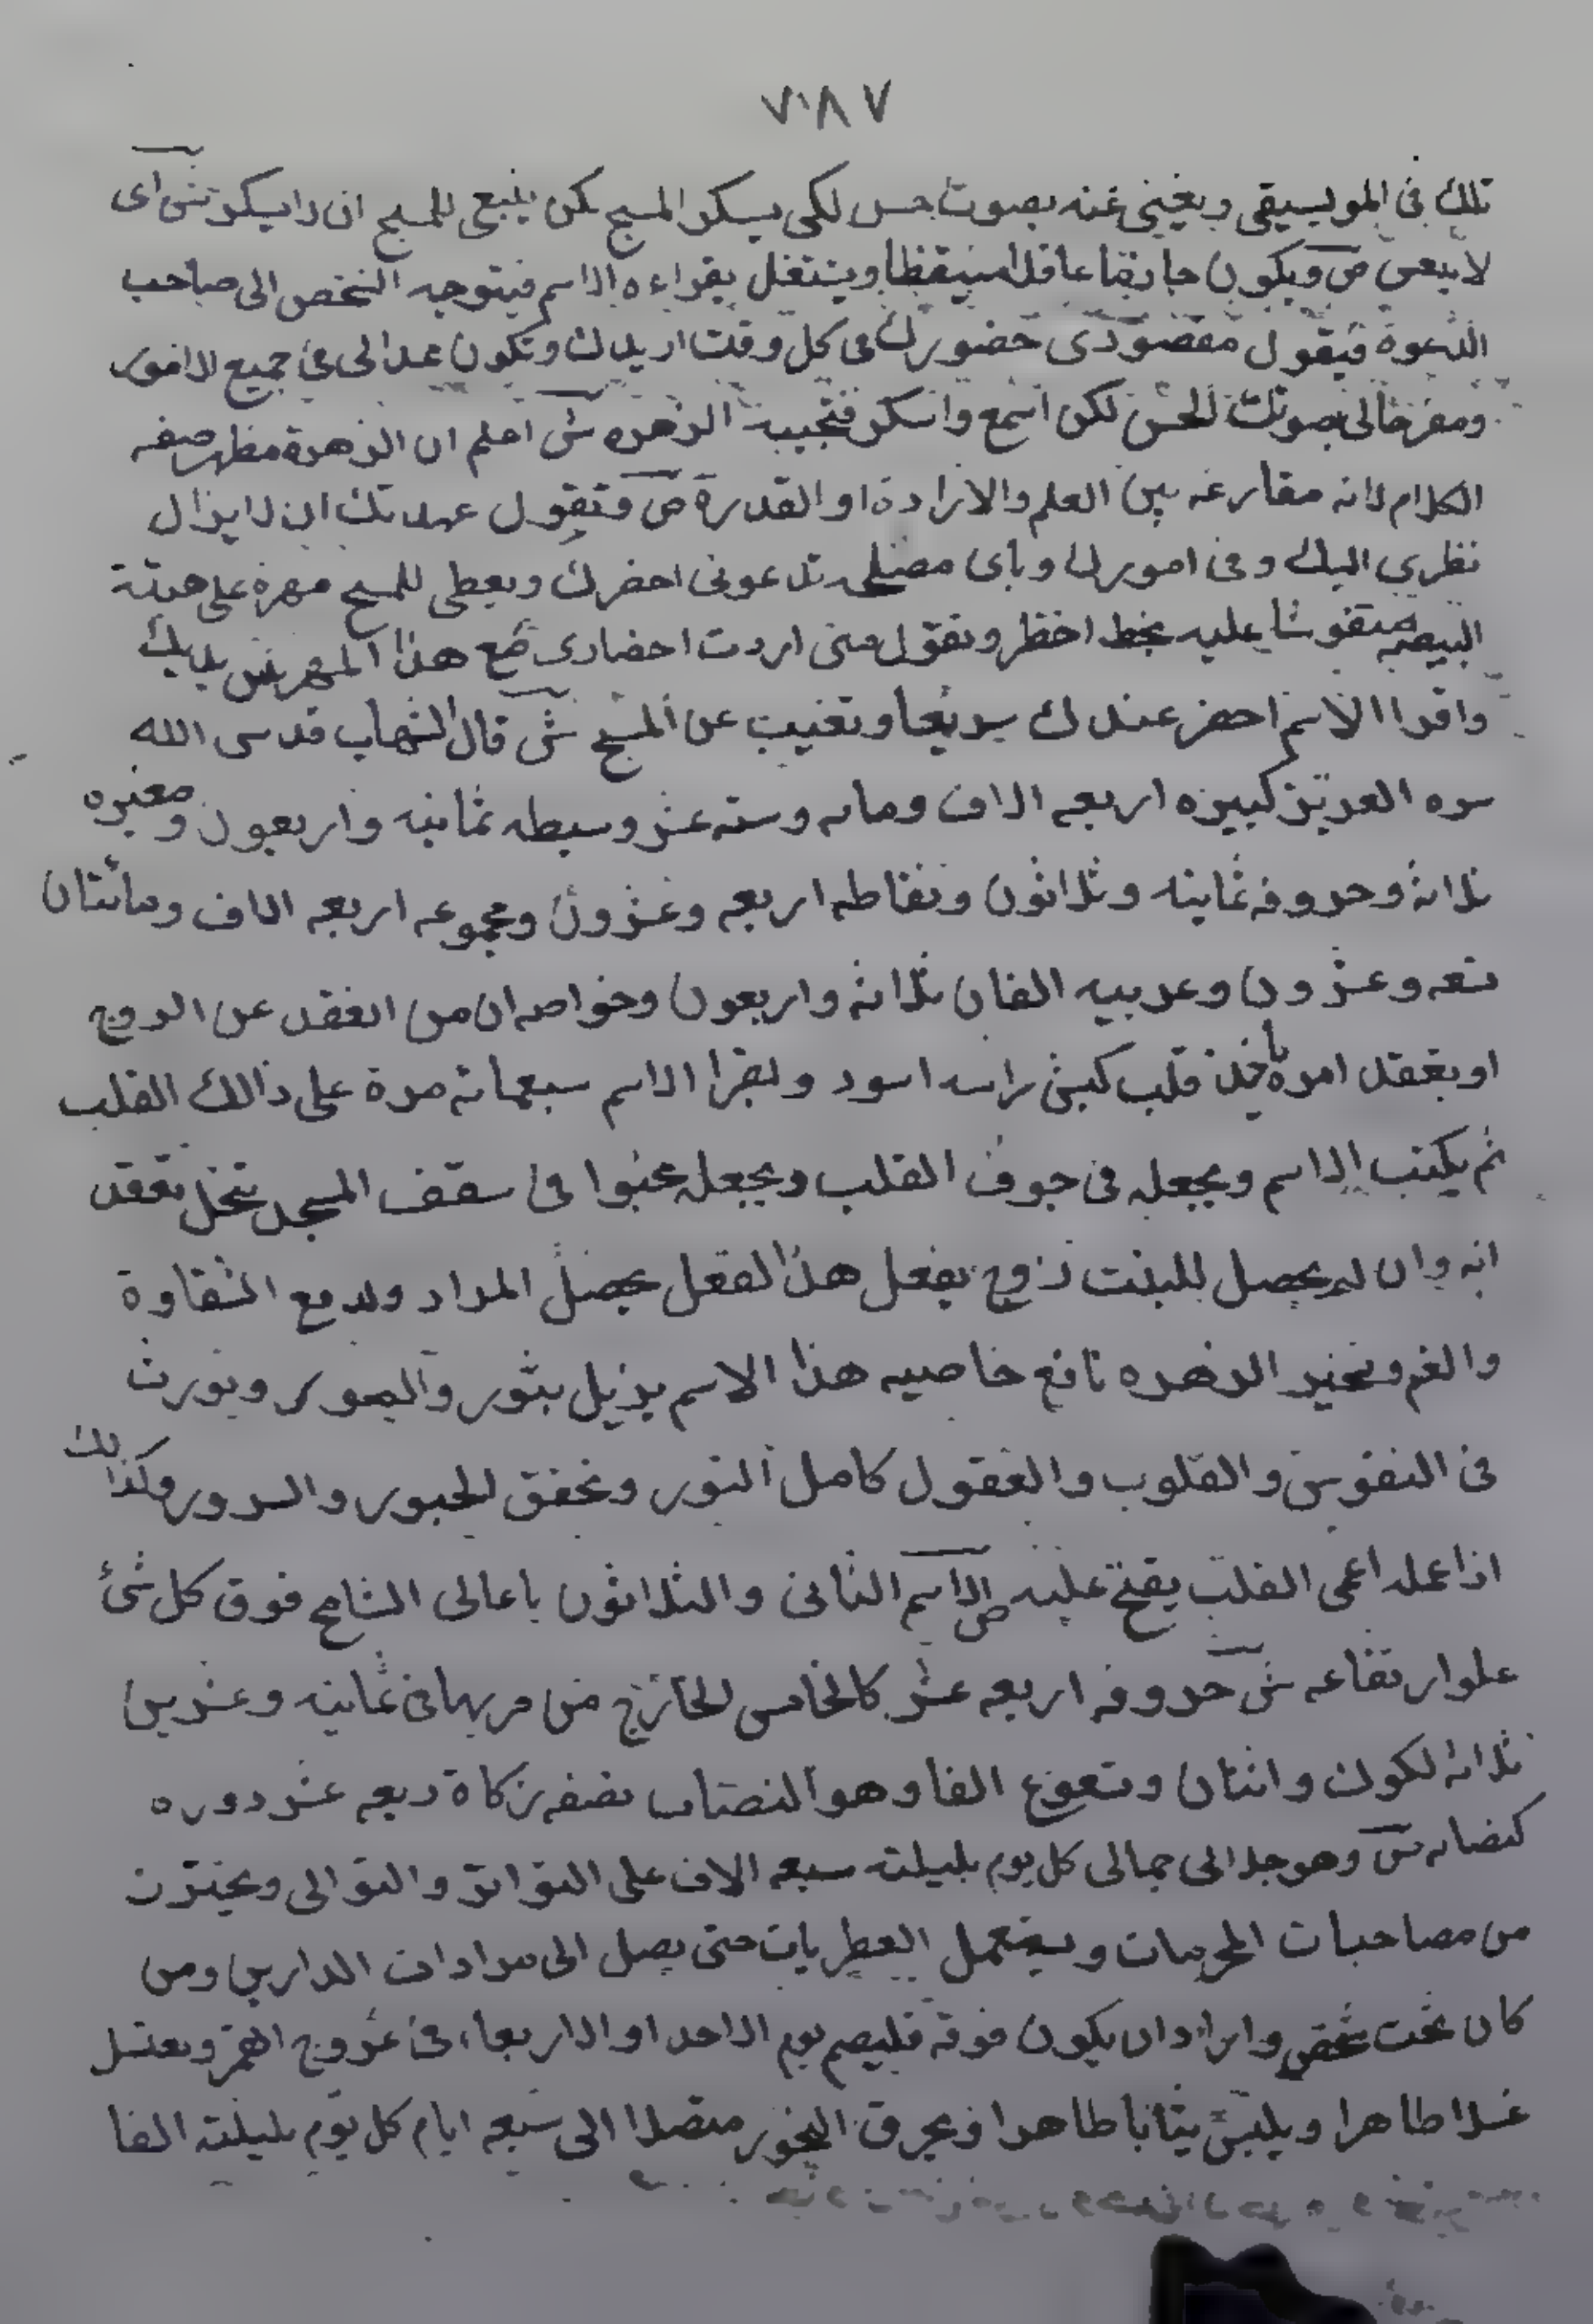 ٧٠٨٧
تلك فى الموسيقى ويغنى عنه بصوت حسن لكى يسكر المسبح لكن ينبغى للمسبح ان لا يسكر شى اى
لا ينبغى ص ويكون حاذقا عاقلا مستيقظا ويشتغل بقراءه الاسم فيتوجه الشخص الى صاحب
الدعوة فيقول مقصودى حضورك فى كل وقت اريدك وتكون عدالى فى جميع الامور
ومفرحالى بصوتك الحسن لكن اسمع واسكر فتجيبه الزهره ش اعلم ان الزهرة مظهر صفه
الكلام لانه مقارنه بين العلم والارادة او القدرة ص وتقول عهدتك ان لا يزال
نظرى اليك وفى امورك وباى تدعونى احضرك ويعطى للمسبح مهرة على هيئة
البيضه منقوشا عليه بخط اخظر وتقول متى اردت احضارى ضع هذا المهر بين يديك
واقرا الاسم احضر عندك سريعا وتغيب عن المسبح ش قال الشهاب قدس الله
سره العزيز كبيره اربعه الاف ومايه وسته عشر وسيطه ثمانيه واربعون وصغيره
ثلاثة وحروفه ثمانيه وثلاثون ونقاطه اربعه وعشرون ومجموعه اربعه الاف ومائتان
تسعه وعشرون وعربيه الفان ثلاثة واربعون وخواصه ان من انعقد عن الزوج
او بعقد امرة ياخذ قلب كبش راسه اسود ويقرا الاسم سبعمائه مرة على ذالك القلب
ثم يكتب الاسم ويجعله فى جوف القلب ويجعله مخبوا فى سقف المسجد تنحل عقد
انه وان لم يحصل للبنت زوج يفعل هذا الفعل يحصل المراد ولدفع الشقاوة
والغم وتسخير الزهره نافع خاصيه هذا الاسم يزيل بثور والصور ويورث
فى النفوس والقلوب والعقول كامل النور وتحقق الحبور والسرور وكذالك
اذا عمله اعمى القلب يفتح عليه ص الاسم الثانى والثلاثون ياعالى الشامخ فوق كل شئ
علوار تفاعه ش حروفه اربعه عشر كالخامس الخارج من مربهافى ثمانيه وعشرين
ثلاثه لكون واثنان وتسعون الفا وهو النصاب نصفه زكاة ربعه عشر دوره
كنصابه ش وهو جلالى جمالى كل يوم بليلته سبعه الاف على التواتر والتوالى ويحترز
من مصاحبات المحرمات ويستعمل العطريات حتى يصل الى مرادات الدارين ومن
كان تحت شخص واراد ان يكون فوقه فليصم يوم الاحد او الاربعاء فى عروج القمر ويغتسل
غسلا طاهرا ويلبس ثيابا طاهرا ويحرق البخور متصلا الى سبعه ايام كل يوم بليلته الفا